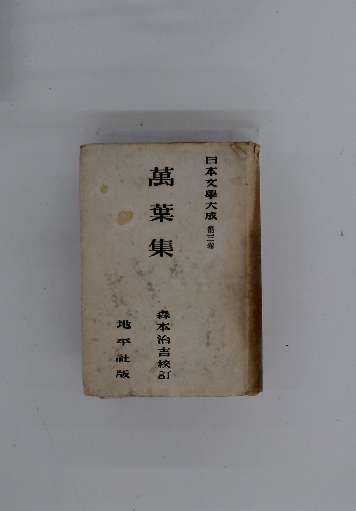 日本文學大成 第三卷
萬葉集
森本治吉校訂
地平社版